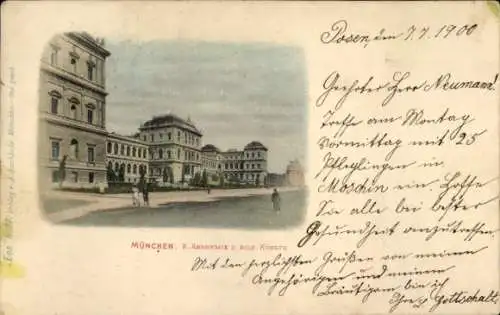 Posen, den 7.7.1900
Geehrter Herr Neumann!
Treffe am Montag
Vormittag mit 25
Pfleglingen in
Moschin ein. Hoffe
Sie alle bei bester
Gesundheit anzutreffen
Mit den herzlichsten Grüßen von meinen
Angehörigen und meinem
Bräutigam bin ich
Ihre Gottschalk.
MÜNCHEN. K. Akademie d. bild. Künste.